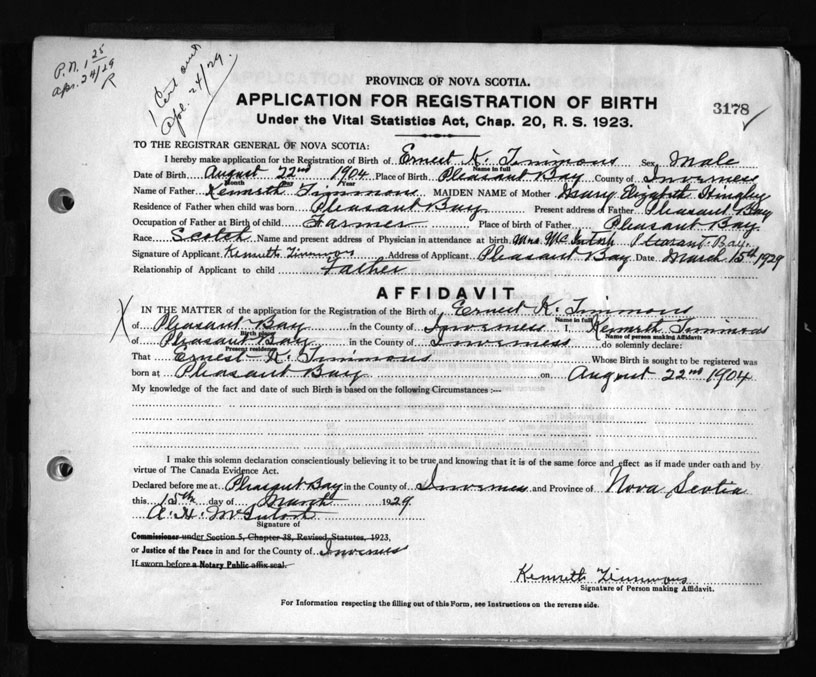 P.N. 1 25
Apr. 24/29
R
1 Cert
Apl. 24/29.
PROVINCE OF NOVA SCOTIA.
APPLICATION FOR REGISTRATION OF BIRTH
3178
Under the Vital Statistics Act, Chap. 20, R. S. 1923.
TO THE REGISTRAR GENERAL OF NOVA SCOTIA:
I hereby make application for the Registration of Birth of Ernest K. Timmons Sex Male
Name in full
Date of Birth August 22nd 1904 Place of Birth Pleasant Bay County of Inverness
Month Day Year
Name of Father Kenneth Timmons MAIDEN NAME of Mother Mary Elizabeth Hingley
Residence of Father when child was born Pleasant Bay Present address of Father Pleasant Bay
Occupation of Father at Birth of child Farmer Place of birth of Father Pleasant Bay.
Race Scotch Name and present address of Physician in attendance at birth Mrs. McIntosh Pleasant Bay.
Signature of Applicant Kenneth Timmons Address of Applicant Pleasant Bay Date March 15th 1929
Relationship of Applicant to child Father
AFFIDAVIT
X IN THE MATTER of the application for the Registration of the Birth of Ernest K. Timmons
Name in full
of Pleasant Bay in the County of Inverness I, Kenneth Timmons
Birth place Name of person making Affidavit
of Pleasant Bay in the County of Inverness do solemnly declare:
Present residence
That Ernest K. Timmons Whose Birth is sought to be registered was
born at Pleasant Bay on August 22nd 1904
My knowledge of the fact and date of such Birth is based on the following Circumstances :—
I make this solemn declaration conscientiously believing it to be true and knowing that it is of the same force and effect as if made under oath and by
virtue of The Canada Evidence Act.
Declared before me at Pleasant Bay in the County of Inverness and Province of Nova Scotia
this 15th day of March 1929
A. H. McIntosh
Signature of
Commissioner under Section 5, Chapter 38, Revised Statutes, 1923,
or Justice of the Peace in and for the County of Inverness
If sworn before a Notary Public affix seal.
Kenneth Timmons
Signature of Person making Affidavit.
For Information respecting the filling out of this Form, see Instructions on the reverse side.